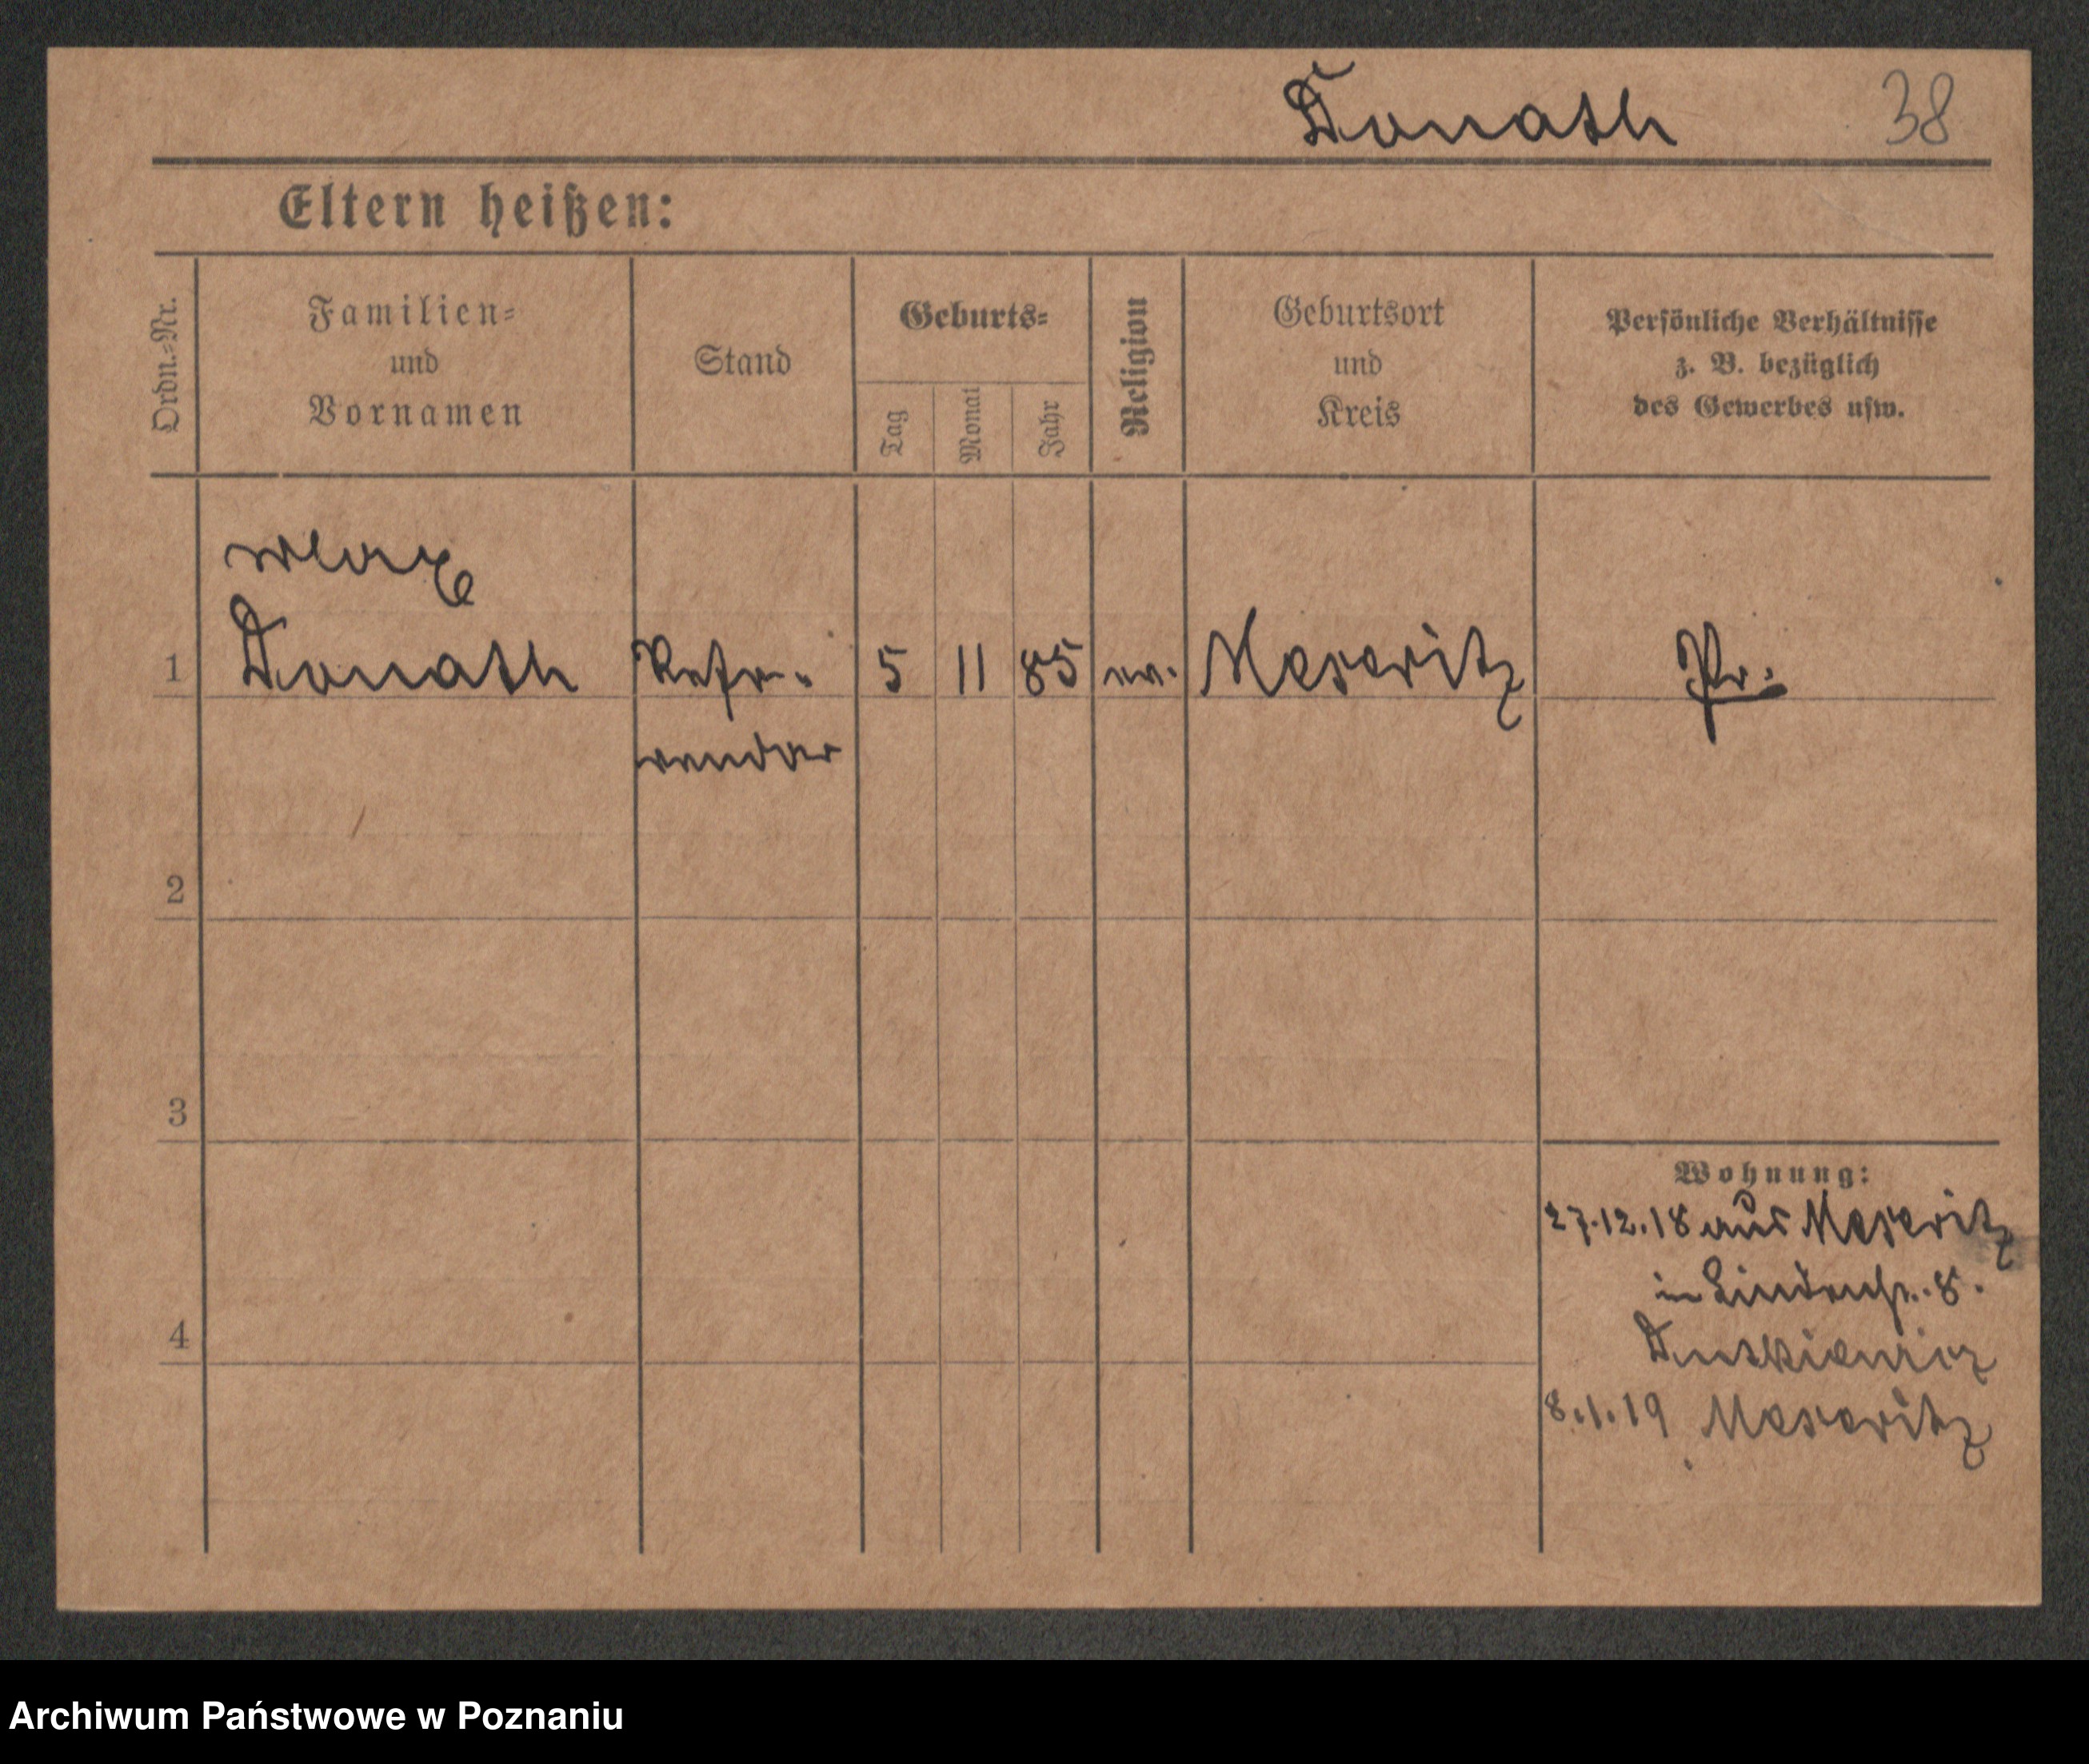 Donath 38
Eltern heißen:
Ordn.-Nr.
Familien-
und
Vornamen
Stand
Geburts-
Tag
Monat
Jahr
Religion
Geburtsort
und
Kreis
Persönliche Verhältnisse
z. B. bezüglich
des Gewerbes usw.
Max
1 Donath Refe- 5 11 85 ev. Meseritz Pr.
rendar
2
3
Wohnung:
27.12.18 aus Meseritz
in Lindenstr. 8.
4
8.1.19 Meseritz
Archiwum Państwowe w Poznaniu